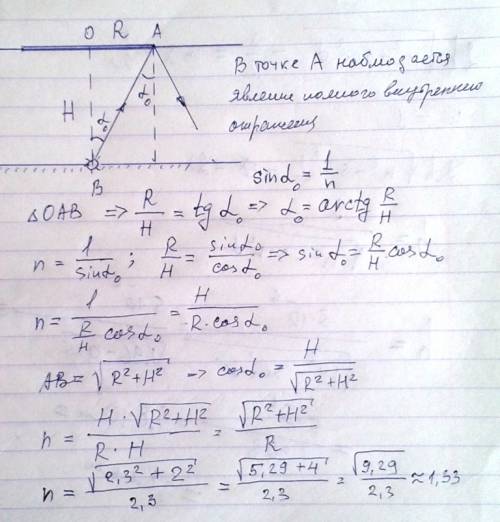 O R A
H α₀ α₀
B
В точке А наблюдается
явление полного внутреннего
отражения
sinα₀ = 1/n
△OAB => R/H = tgα₀ => α₀ = arctg R/H
n = 1/sinα₀ ; R/H = sinα₀/cosα₀ => sinα₀ = R/H cosα₀
n = 1/(R/H cosα₀) = H/(R·cosα₀)
AB = √(R²+H²) -> cosα₀ = H/√(R²+H²)
n = (H·√(R²+H²))/(R·H) = √(R²+H²)/R
n = √(2,3²+2²)/2,3 = √(5,29+4)/2,3 = √9,29/2,3 ≈ 1,33